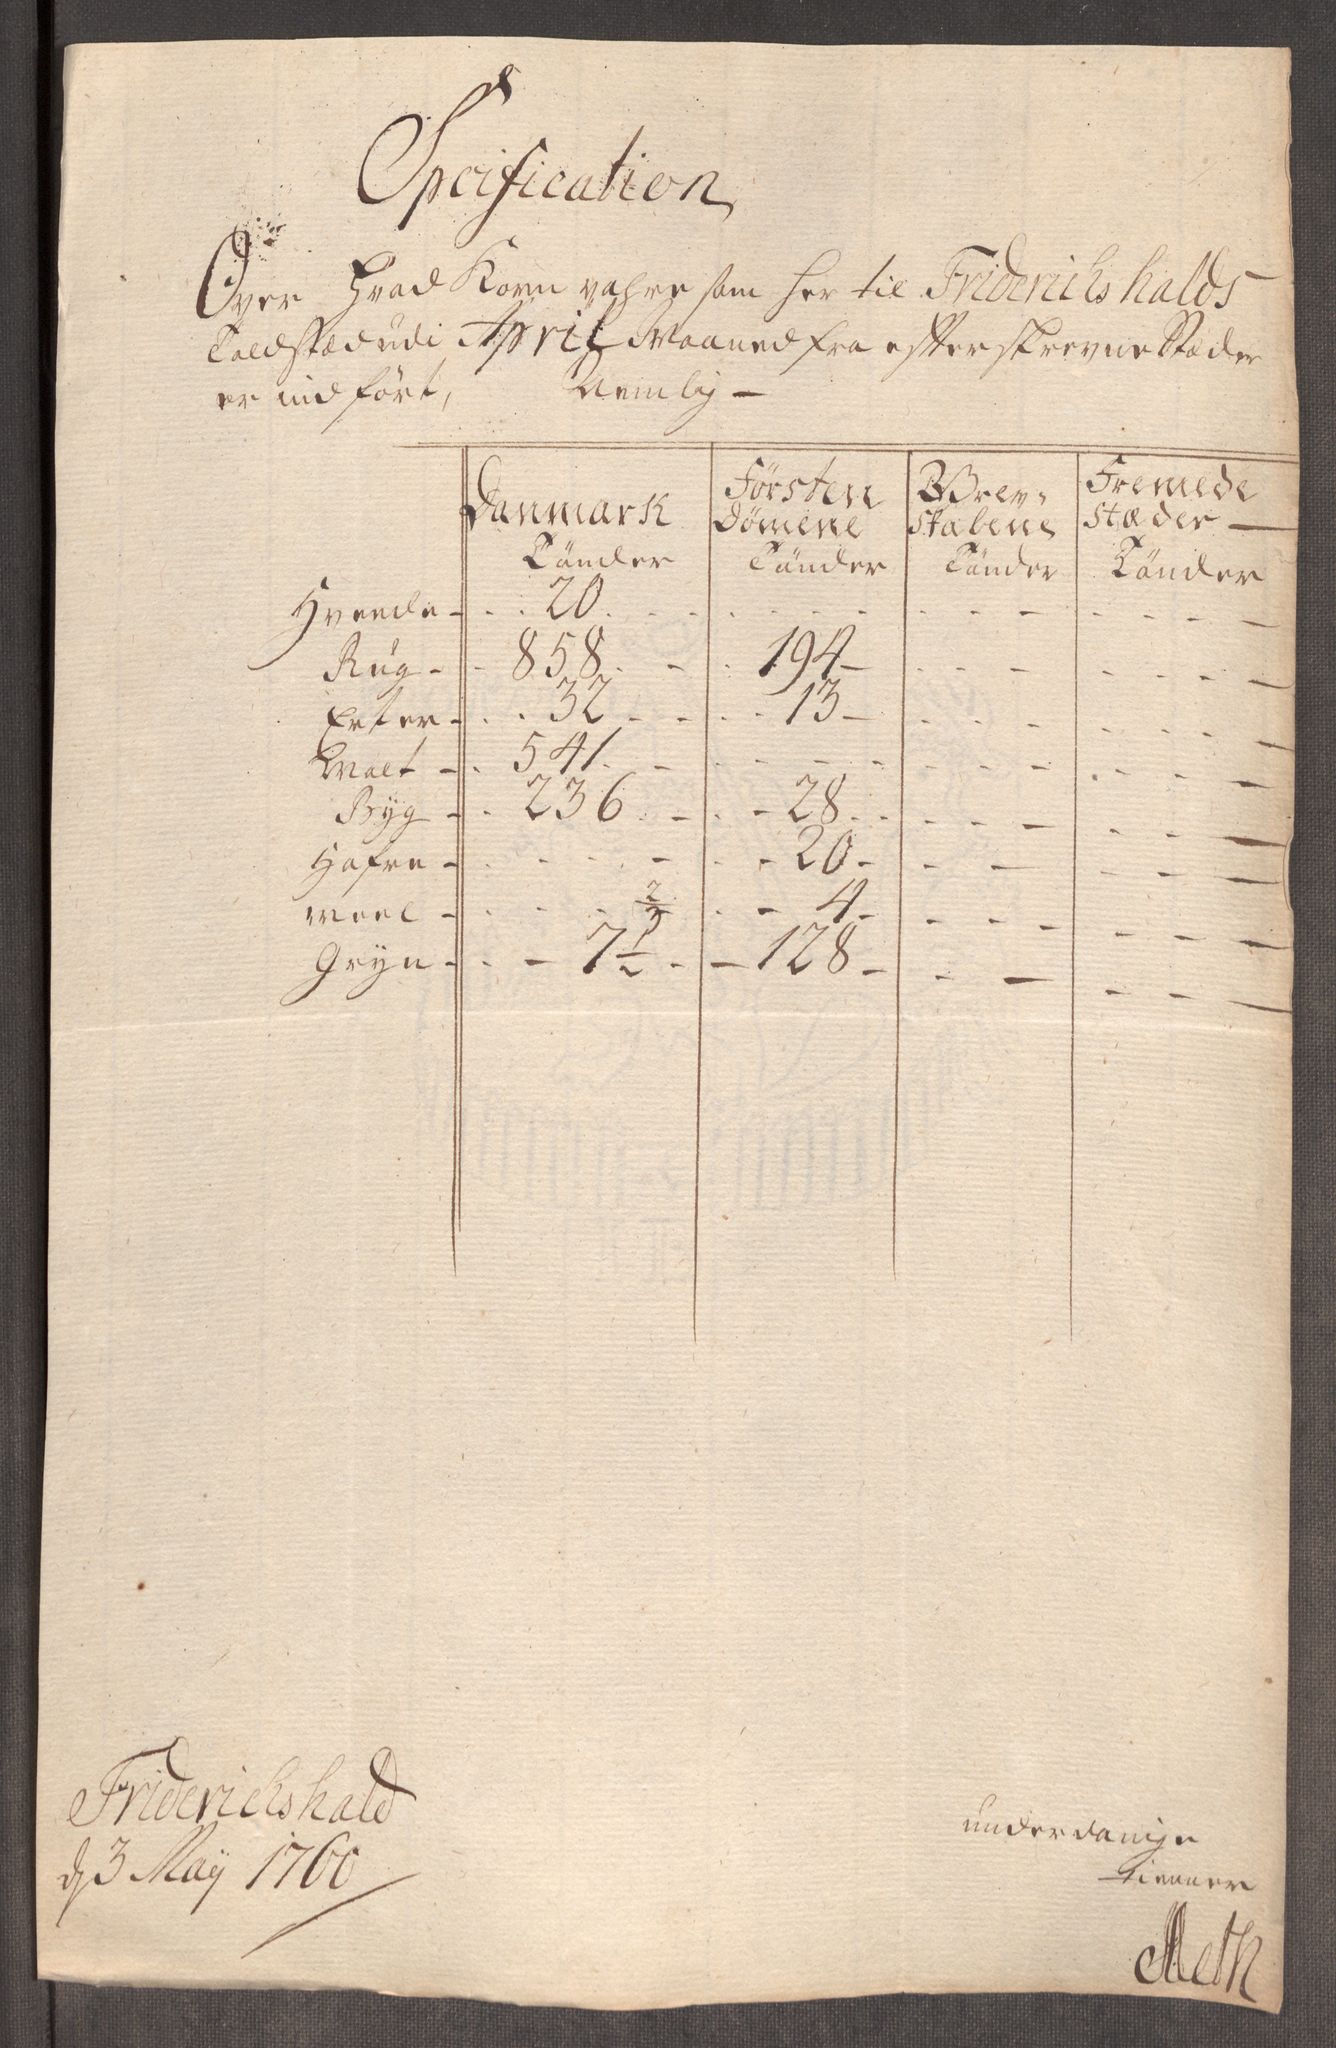 Specification
Over Hvad Korn vahre som her til Friderichshalds
Toldstæd udi April Maaned fra efterskrevne Stæder
er indført, Nemlig -
Danmark Førsten Grev- Fremede
dømene skabene stæder
Tönder Tönder Tönder Tönder
Hvede 20
Rug 858 194
Erter 32 13
Malt 541
Byg 236 28
Hafre 20
meel 2/3 4
Gryn 7 1/2 128
Friderichshald
d 3 May 1760
underdanige
tienner